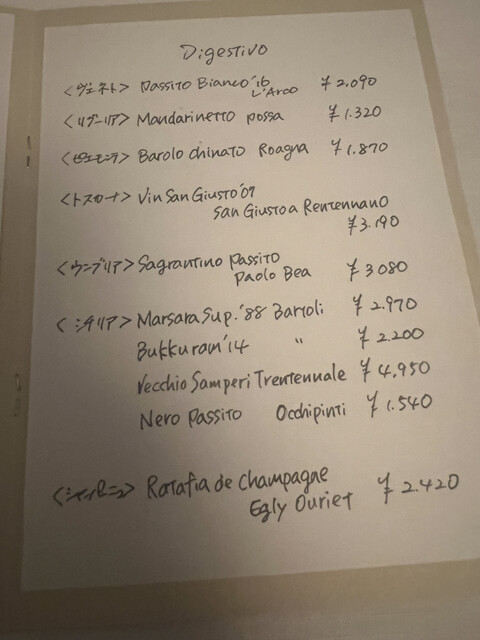 Digestivo
<ヴェネト> Passito Bianco '16 ¥2.090
L'Arco
<リグーリア> Mandarinetto Possa ¥1.320
<ピエモンテ> Barolo chinato Roagna ¥1.870
<トスカーナ> Vin San Giusto '09
San Giusto a Rentennano
¥3.190
<ウンブリア> Sagrantino Passito
Paolo Bea ¥3080
<シチリア> Marsara Sup. '88 Bartoli ¥2.970
Bukkuram '14 〃 ¥2.200
Vecchio Samperi Trentennale ¥4.950
Nero Passito Occhipinti ¥1.540
<シャンパーニュ> Ratafia de Champagne
Egly Ouriet ¥2.420